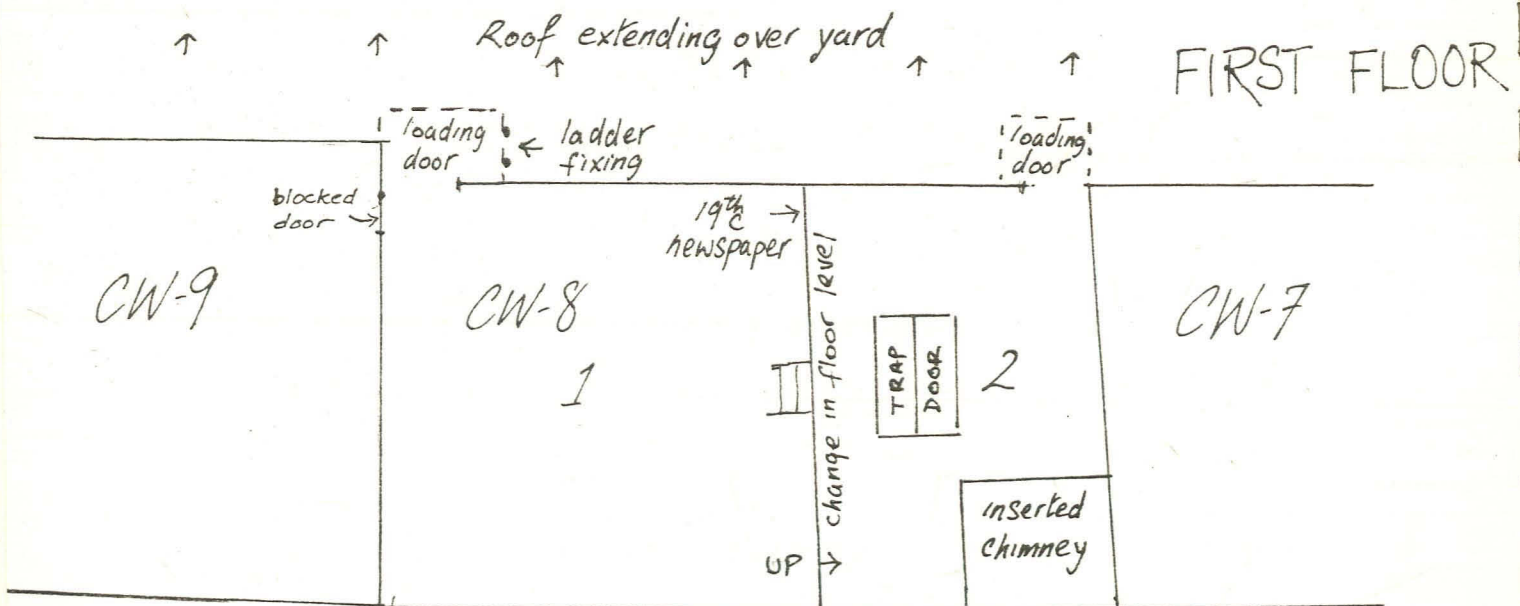 Roof extending over yard
FIRST FLOOR
loading
door
ladder
fixing
loading
door
blocked
door
19th C
newspaper
change in floor level
CW-9
CW-8
CW-7
1
TRAP
DOOR
2
UP
inserted
chimney